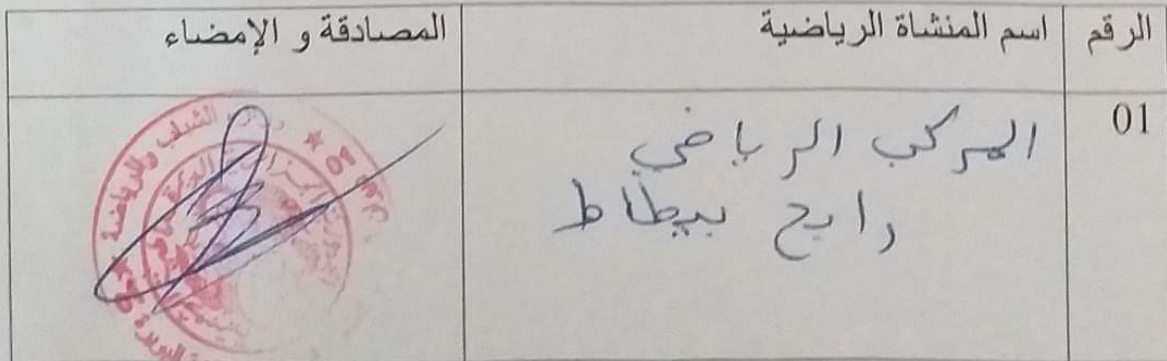 الرقم
اسم المنشاة الرياضية
المصادقة و الإمضاء
01
المركب الرياضي
رابح بيطاط
الشباب والرياضة
البويرة